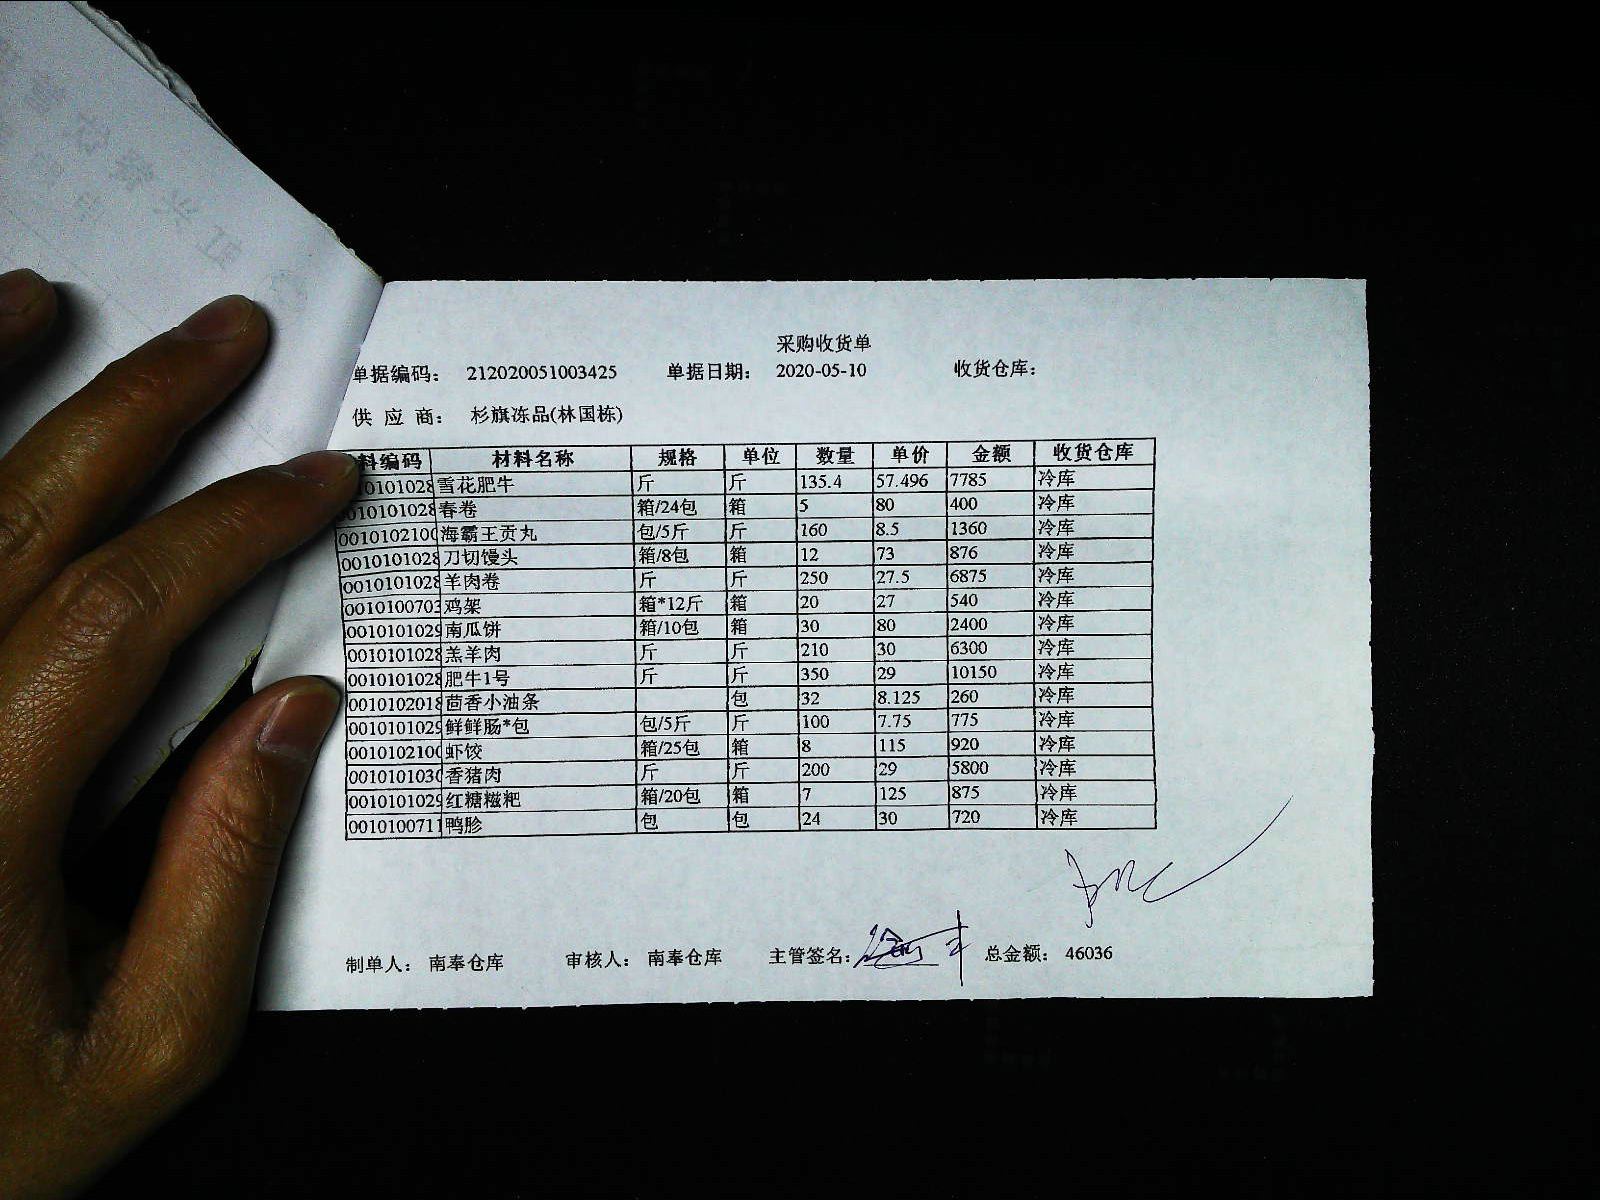 采购收货单
单据编码： 212020051003425 单据日期： 2020-05-10 收货仓库：
供 应 商： 杉旗冻品(林国栋)
料编码 材料名称 规格 单位 数量 单价 金额 收货仓库
10101028 雪花肥牛 斤 斤 135.4 57.496 7785 冷库
0010101028 春卷 箱/24包 箱 5 80 400 冷库
0010102100 海霸王贡丸 包/5斤 斤 160 8.5 1360 冷库
0010101028 刀切馒头 箱/8包 箱 12 73 876 冷库
0010101028 羊肉卷 斤 斤 250 27.5 6875 冷库
0010100703 鸡架 箱*12斤 箱 20 27 540 冷库
0010101029 南瓜饼 箱/10包 箱 30 80 2400 冷库
0010101028 羔羊肉 斤 斤 210 30 6300 冷库
0010101028 肥牛1号 斤 斤 350 29 10150 冷库
0010102018 茴香小油条 包 32 8.125 260 冷库
0010101029 鲜鲜肠*包 包/5斤 斤 100 7.75 775 冷库
0010102100 虾饺 箱/25包 箱 8 115 920 冷库
0010101030 香猪肉 斤 斤 200 29 5800 冷库
0010101029 红糖糍粑 箱/20包 箱 7 125 875 冷库
0010100711 鸭胗 包 包 24 30 720 冷库
制单人： 南奉仓库 审核人： 南奉仓库 主管签名： 总金额： 46036